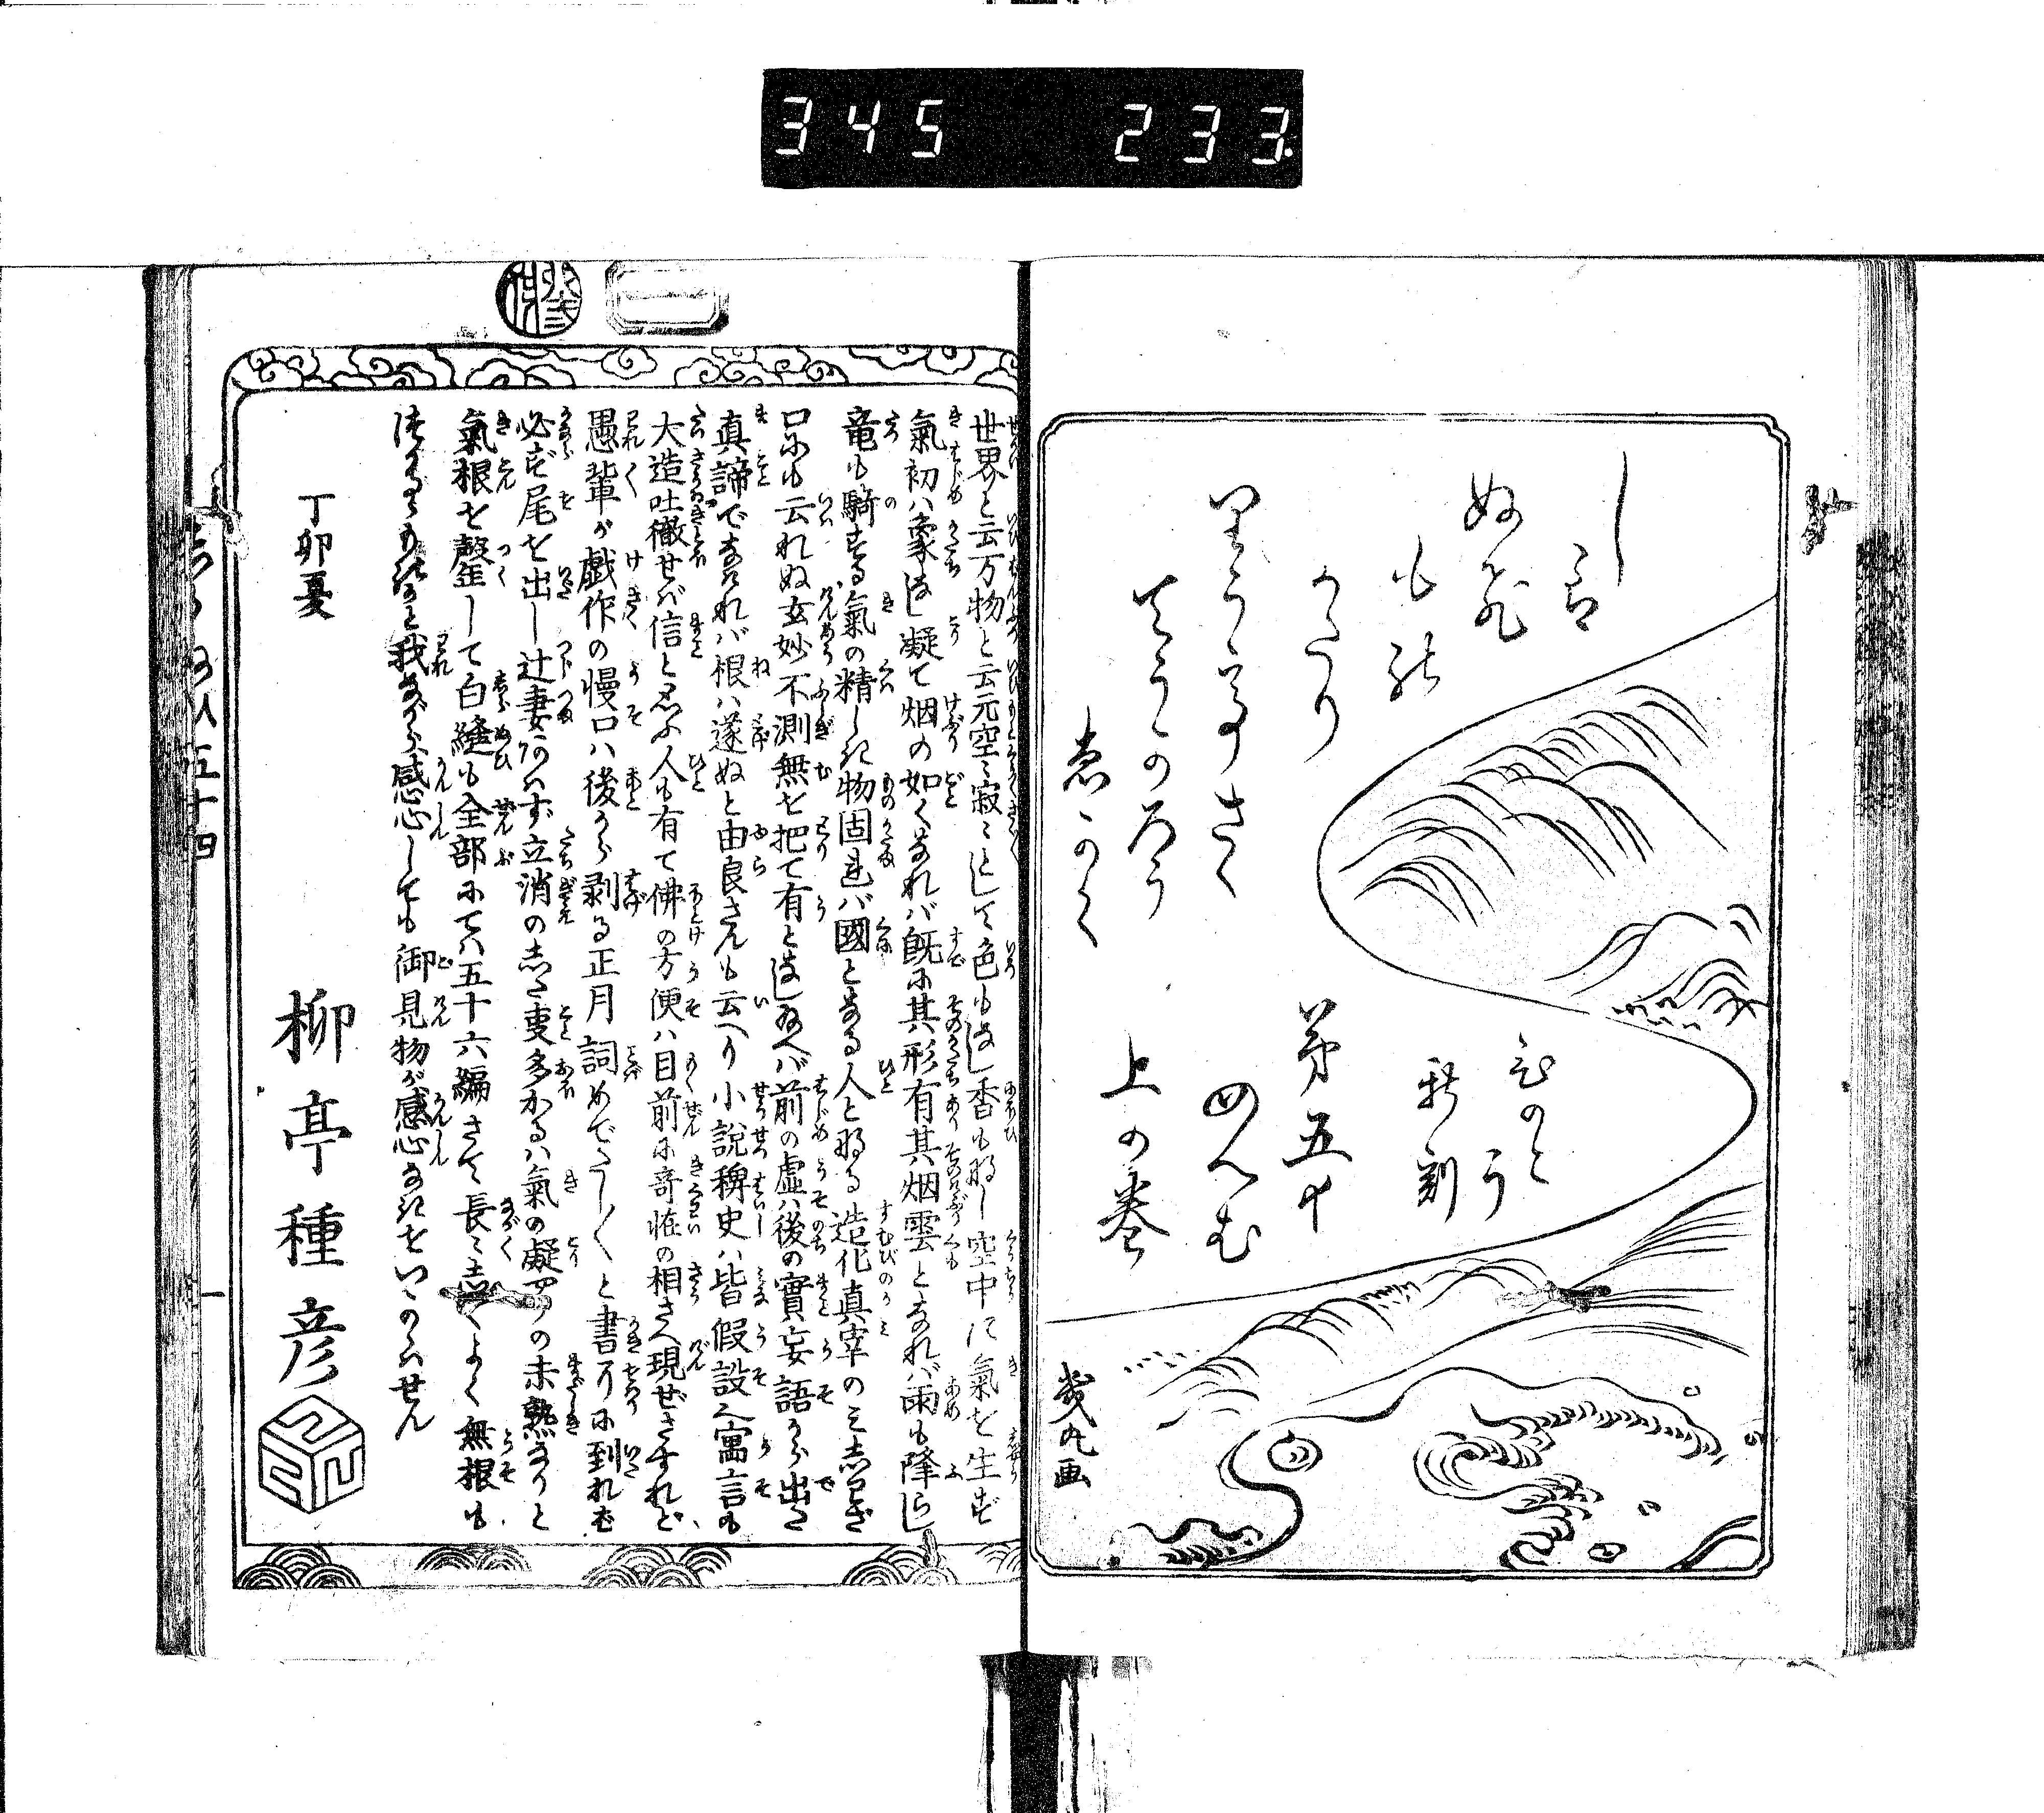 345 233
しら
ぬひ
ものかたり
りうかてい
ひのとう
新刻
第五十
四へむ
上の巻
幾丸画
世界と云万物と云元空〻寂〻として色もなし香も那し空中に氣を生ず
氣初ハ象なし凝て烟の如くなれバ既に其形有其烟雲となれバ雨も降らし
竜も騎する氣の精しき物固まれバ國となる人と那る造化真宰のミ志わざ
口にも云れぬ玄妙不測無を把て有となし給へバ前の虚ハ後の實妄語から出た
真諦でなけれバ根ハ遂ぬと由良さんも云へり小説稗史ハ皆假設の寓言も
大造吐徹せバ信と思ふ人も有て佛の方便ハ目前に竒怪の相さへ現ぜさすれど
愚輩が戯作の慢口ハ後から剥る正月詞めでたし〳〵と書了に到れば
必ず尾を出し辻妻あハず立消の志た叓多かるハ氣の凝やうの未熟なりと
氣根を罄して白縫も全部にてハ五十六編さて長〻志くよく無根も
つゞきしものと我ながら感心しても御見物が感心なきをいかゞハせん
丁卯夏
柳亭種彦
五十四
一